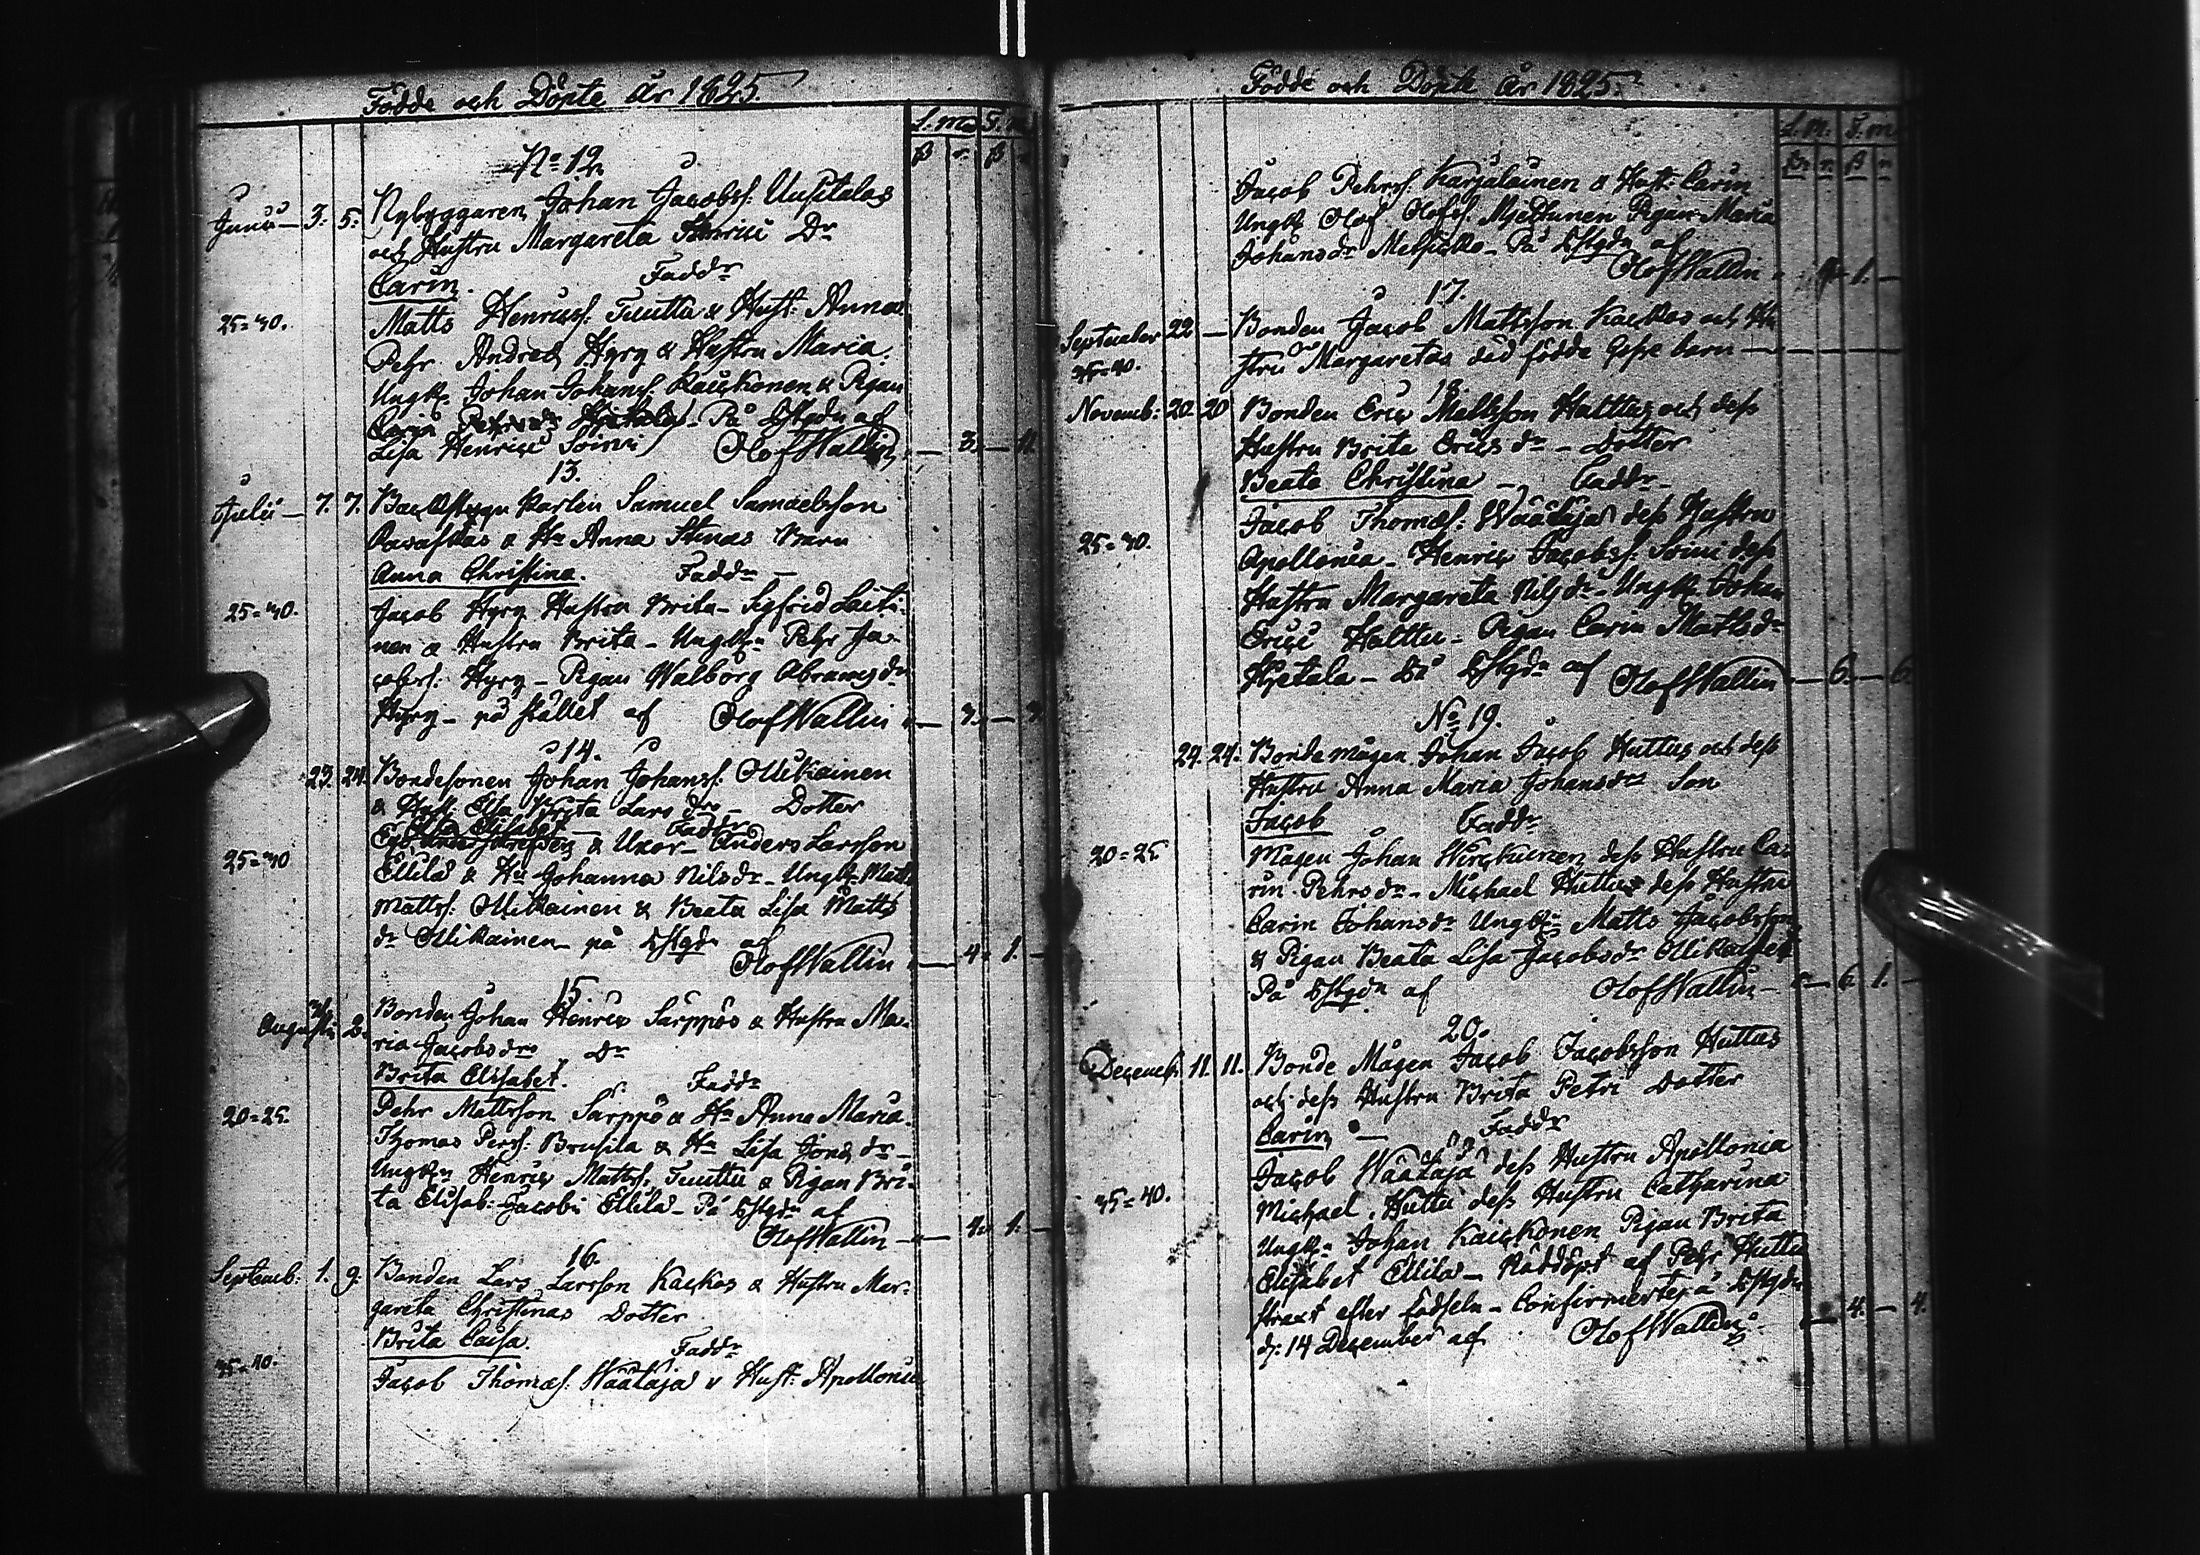 Födde och Döpte år 1825.
S. M. T. M.
No 12
Junii 3. 5. Nybyggaren Johan Jacobss: Uusitalos
och Hustru Margareta Henrici Dr
Carin. Faddr
25=30. Matts Henricss: Tuuttu & Hust: Anna
Pehr Andreæ Hyry & Hustru Maria.
Ungk: Johan Johanss: Kaickonen & Pigan
På af
Lisa Henrici Soini Olof Wallin — 3. —
13.
Julii — 7. 7. Karlen Samuel Samuelsson
& Hu Anna Stinas Barn
Anna Christina. Faddr —
25=30. Jacob Hyry Hustru Brita — Sigfrid Laiti-
nen & Hustru Brita — Ungkn Pehr Ja-
cobss: Hyry — Pigan Walborg Abramsdr
Hyry — på stället af Olof Wallin — 3. — 3
14.
23. 24. Bondesonen Johan Johanss: Ollikainen
& Hust: Elsa Brita Lars drs — Dotter
Elsa Elisabet Faddr
25=30 & Uxor — Anders Larsson
Ellilä & Hu Johanna Nilsdr — Ungk: Matts
Mattss: Ollikainen & Beata Lisa Matts
dr Ollikainen på af
Olof Wallin — 4. 1. —
15
Augusti 2. Bonden Johan Henric Särppös & Hustru Ma-
ria Jacobsdrs Dr
Brita Elisabet. Faddr
20=25. Pehr Mattsson Särppö & Hu Anna Maria.
Thomas Perss: Brusila & Hu Lisa Jonsdr —
Ungkn Henric Mattss. Tuuttu & Pigan Bri-
ta Elisab: Jacobi Ellilä — På af
Olof Wallin — 4. 1. —
16.
Septemb: 1. 9. Bonden Lars Larsson Kackos & Hustru Mar-
gareta Christinas Dotter
Brita Caisa. Faddr
35=40. Jacob Thomæs: Väätäjä & Hust: Apollonia
Födde och Döpte år 1825.
S. M. T. M.
Jacob Pehrss: Karjalainen & Hust: Carin
Ungk: Olof Olofss: Pigan Maria
Johansdr — På af
Olof Wallin 1. —
17.
September 22 — Bonden Jacob Mattsson Kackos och Hu
35=40. stru Margaretas död födde barn —
18.
Novemb: 20. 20 Bonden Eric Mattsson Halttus och dess
Hustru Brita Ericsdr — Dotter
Beata Christina — Faddr —
Jacob Thomæs: Väätäjä dess Hustru
25=30. Apollonia — Henric Jacobss: Soini dess
Hustru Margareta Nilsdr — Ungk: Johan
Erici Halttu — Pigan Carin Mattsdr
Hietala — På af Olof Wallin — 6. — 6.
No 19.
24. 24. Bondemågen Johan Jacob Huttus och dess
Hustru Anna Maria Johansdrs Son
Jacob Faddr
20=25 Mågen Johan dess Hustru Ca-
rin Pehrsdr — Michael Huttu dess Hustru
Carin Johansdr Ungkn Matts Jacobsson
& Pigan Beata Lisa Jacobsdr Ollikainen
På af Olof Wallin — 6. 1. —
20.
Decemb: 11. 11. Bonde Mågen Jacob Jacobsson Huttus
och dess Hustru Brita Petri Dotter
Carin — Faddr
Jacob Väätäjä dess Hustru Apollonia
35=40. Michael Huttu dess Hustru Catharina
Ungkn Johan Kaickonen Pigan Brita
Elisabet Ellilä — Nöddöpt af Pehr Huttu
straxt efter födseln — Confirmertes å
d: 14 December af Olof Wallin — 4. — 4.